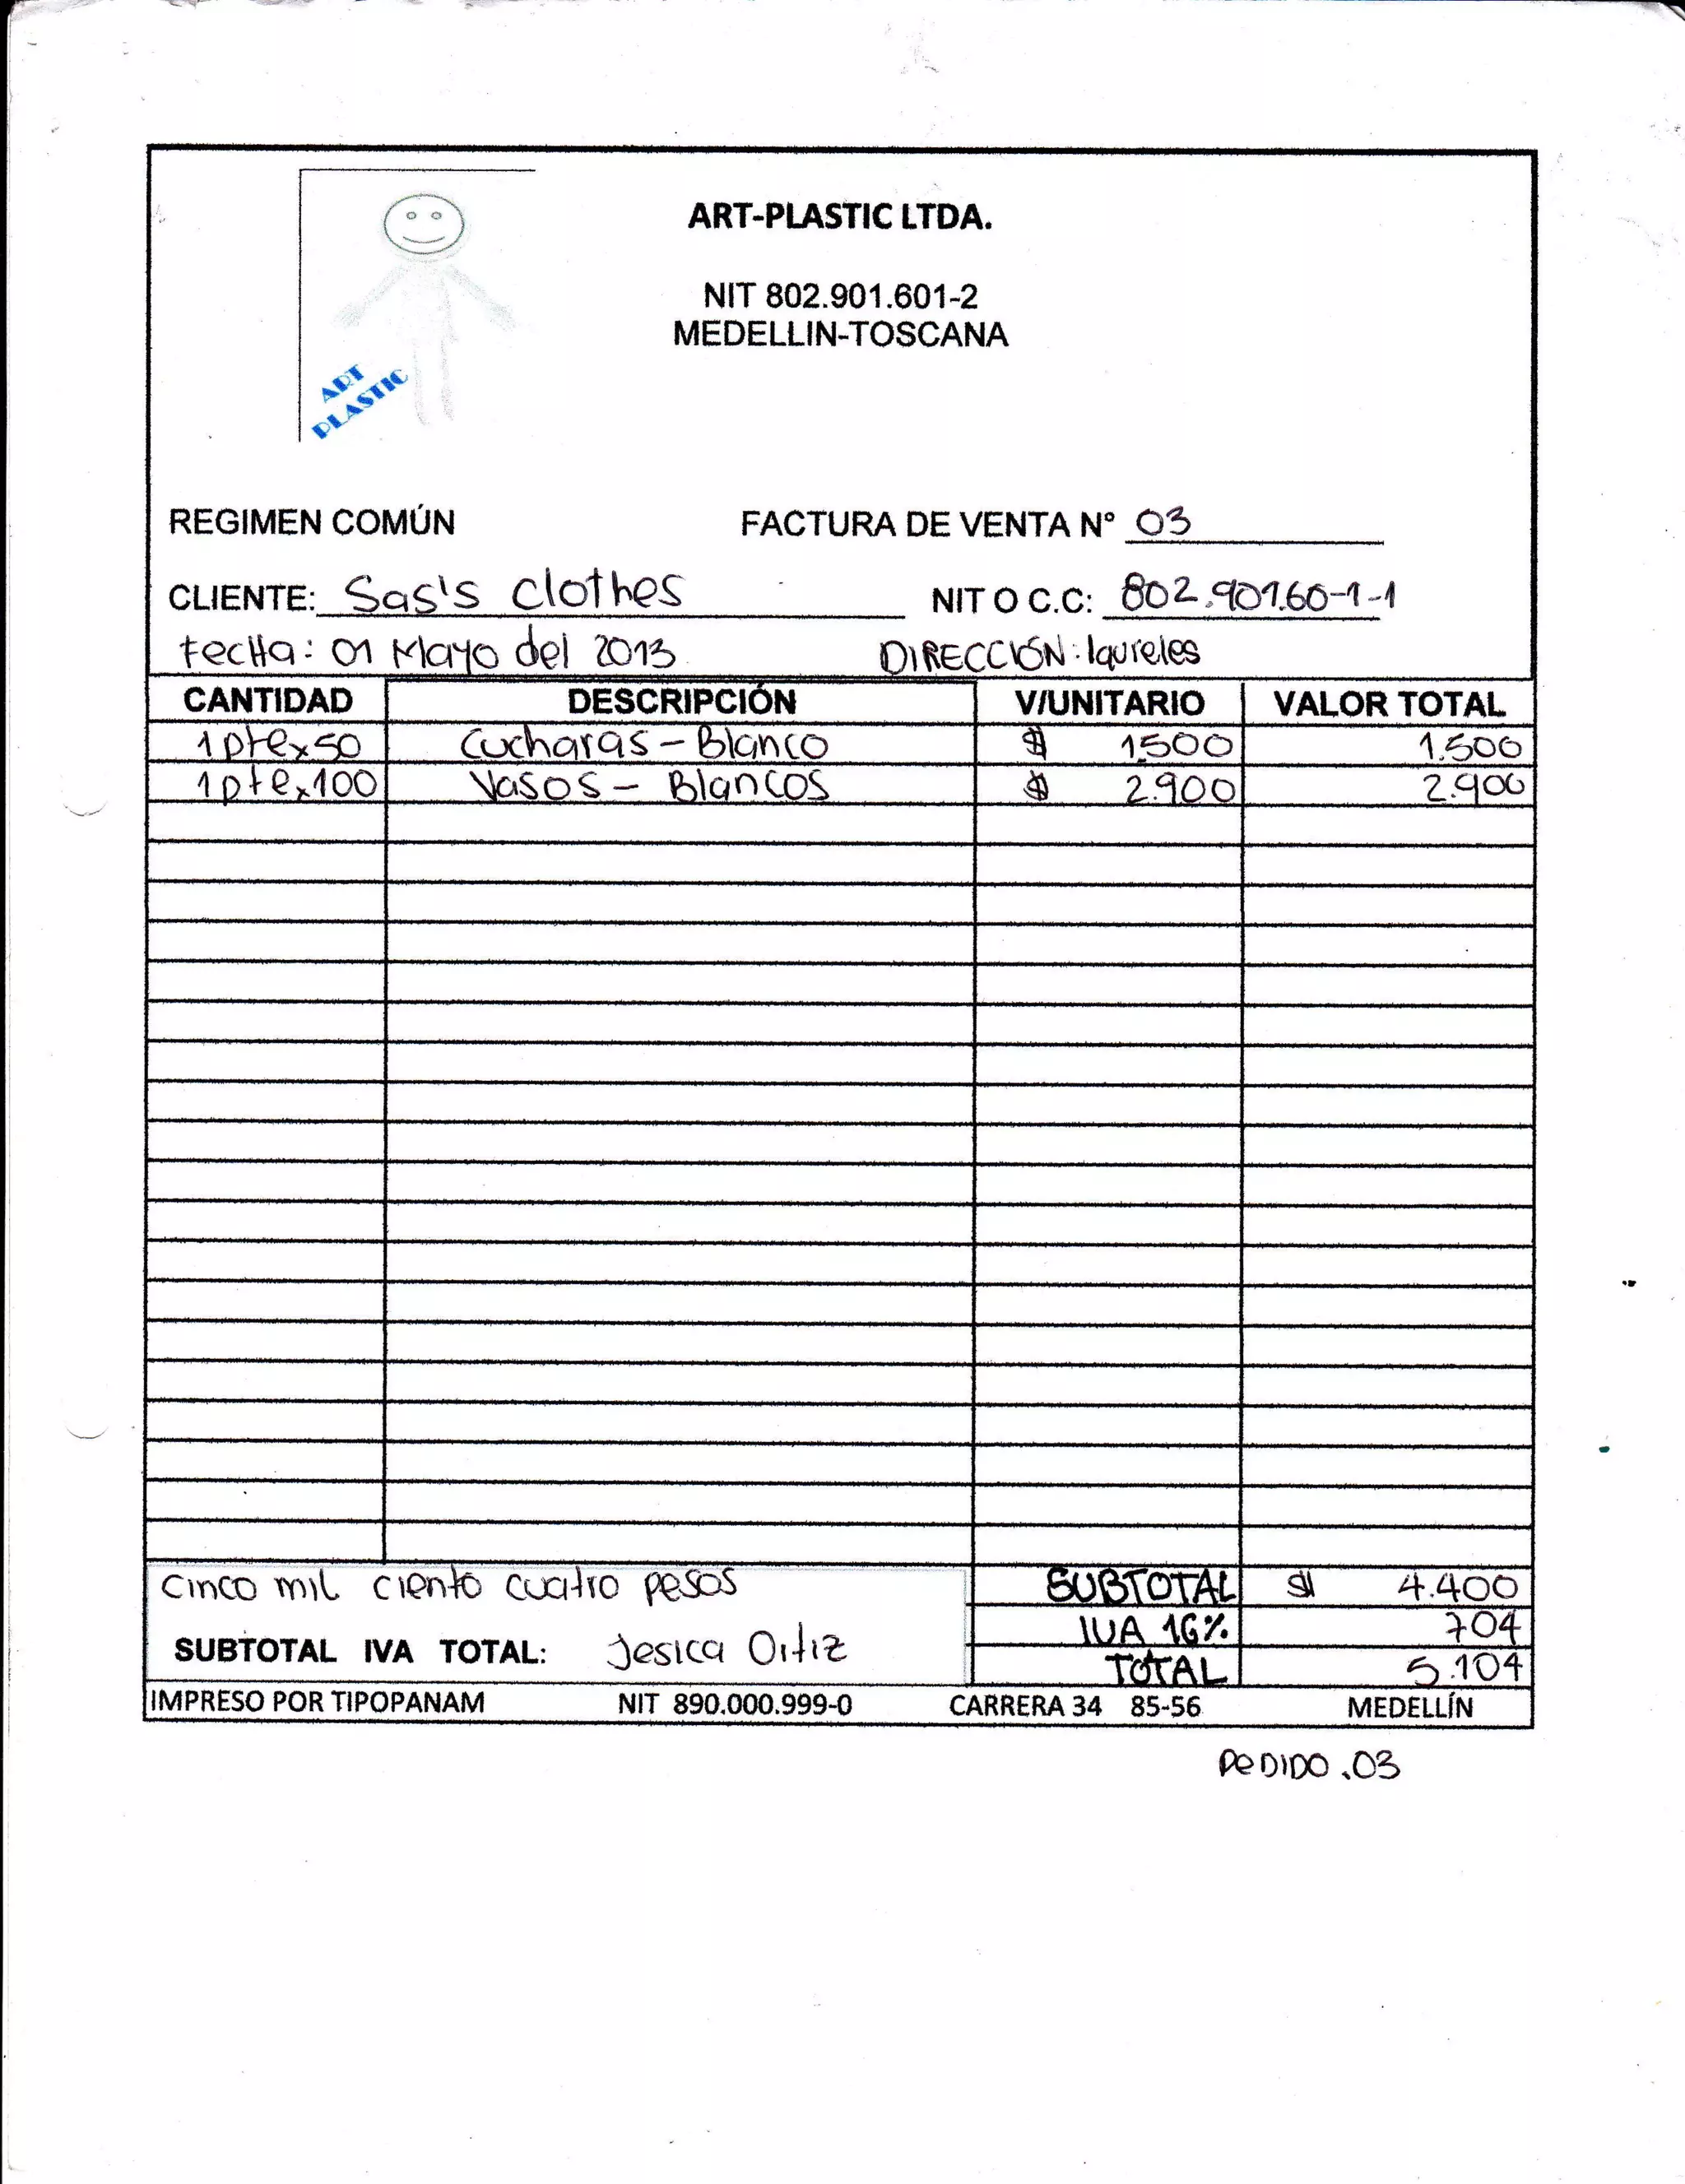 ART-PLASTIC LTDA.
NIT 802.901.601-2
MEDELLIN-TOSCANA
ART
PLASTIC
REGIMEN COMÚN FACTURA DE VENTA N° 03
CLIENTE: Sas's clothes NIT O C.C: 802.901.60-1-1
FecHa: 01 Mayo del 2013 DIRECCIÓN: laureles
CANTIDAD DESCRIPCIÓN V/UNITARIO VALOR TOTAL
1 pte x 50 Cucharas - Blanco $ 1.500 1.500
1 pte x 100 Vasos - Blancos $ 2.900 2.900
Cinco mil ciento cuatro pesos SUBTOTAL $ 4.400
IVA 16% 704
SUBTOTAL IVA TOTAL: Jesica Ortiz TOTAL 5.104
IMPRESO POR TIPOPANAM NIT 890.000.999-0 CARRERA 34 85-56 MEDELLÍN
PeDIDO .03